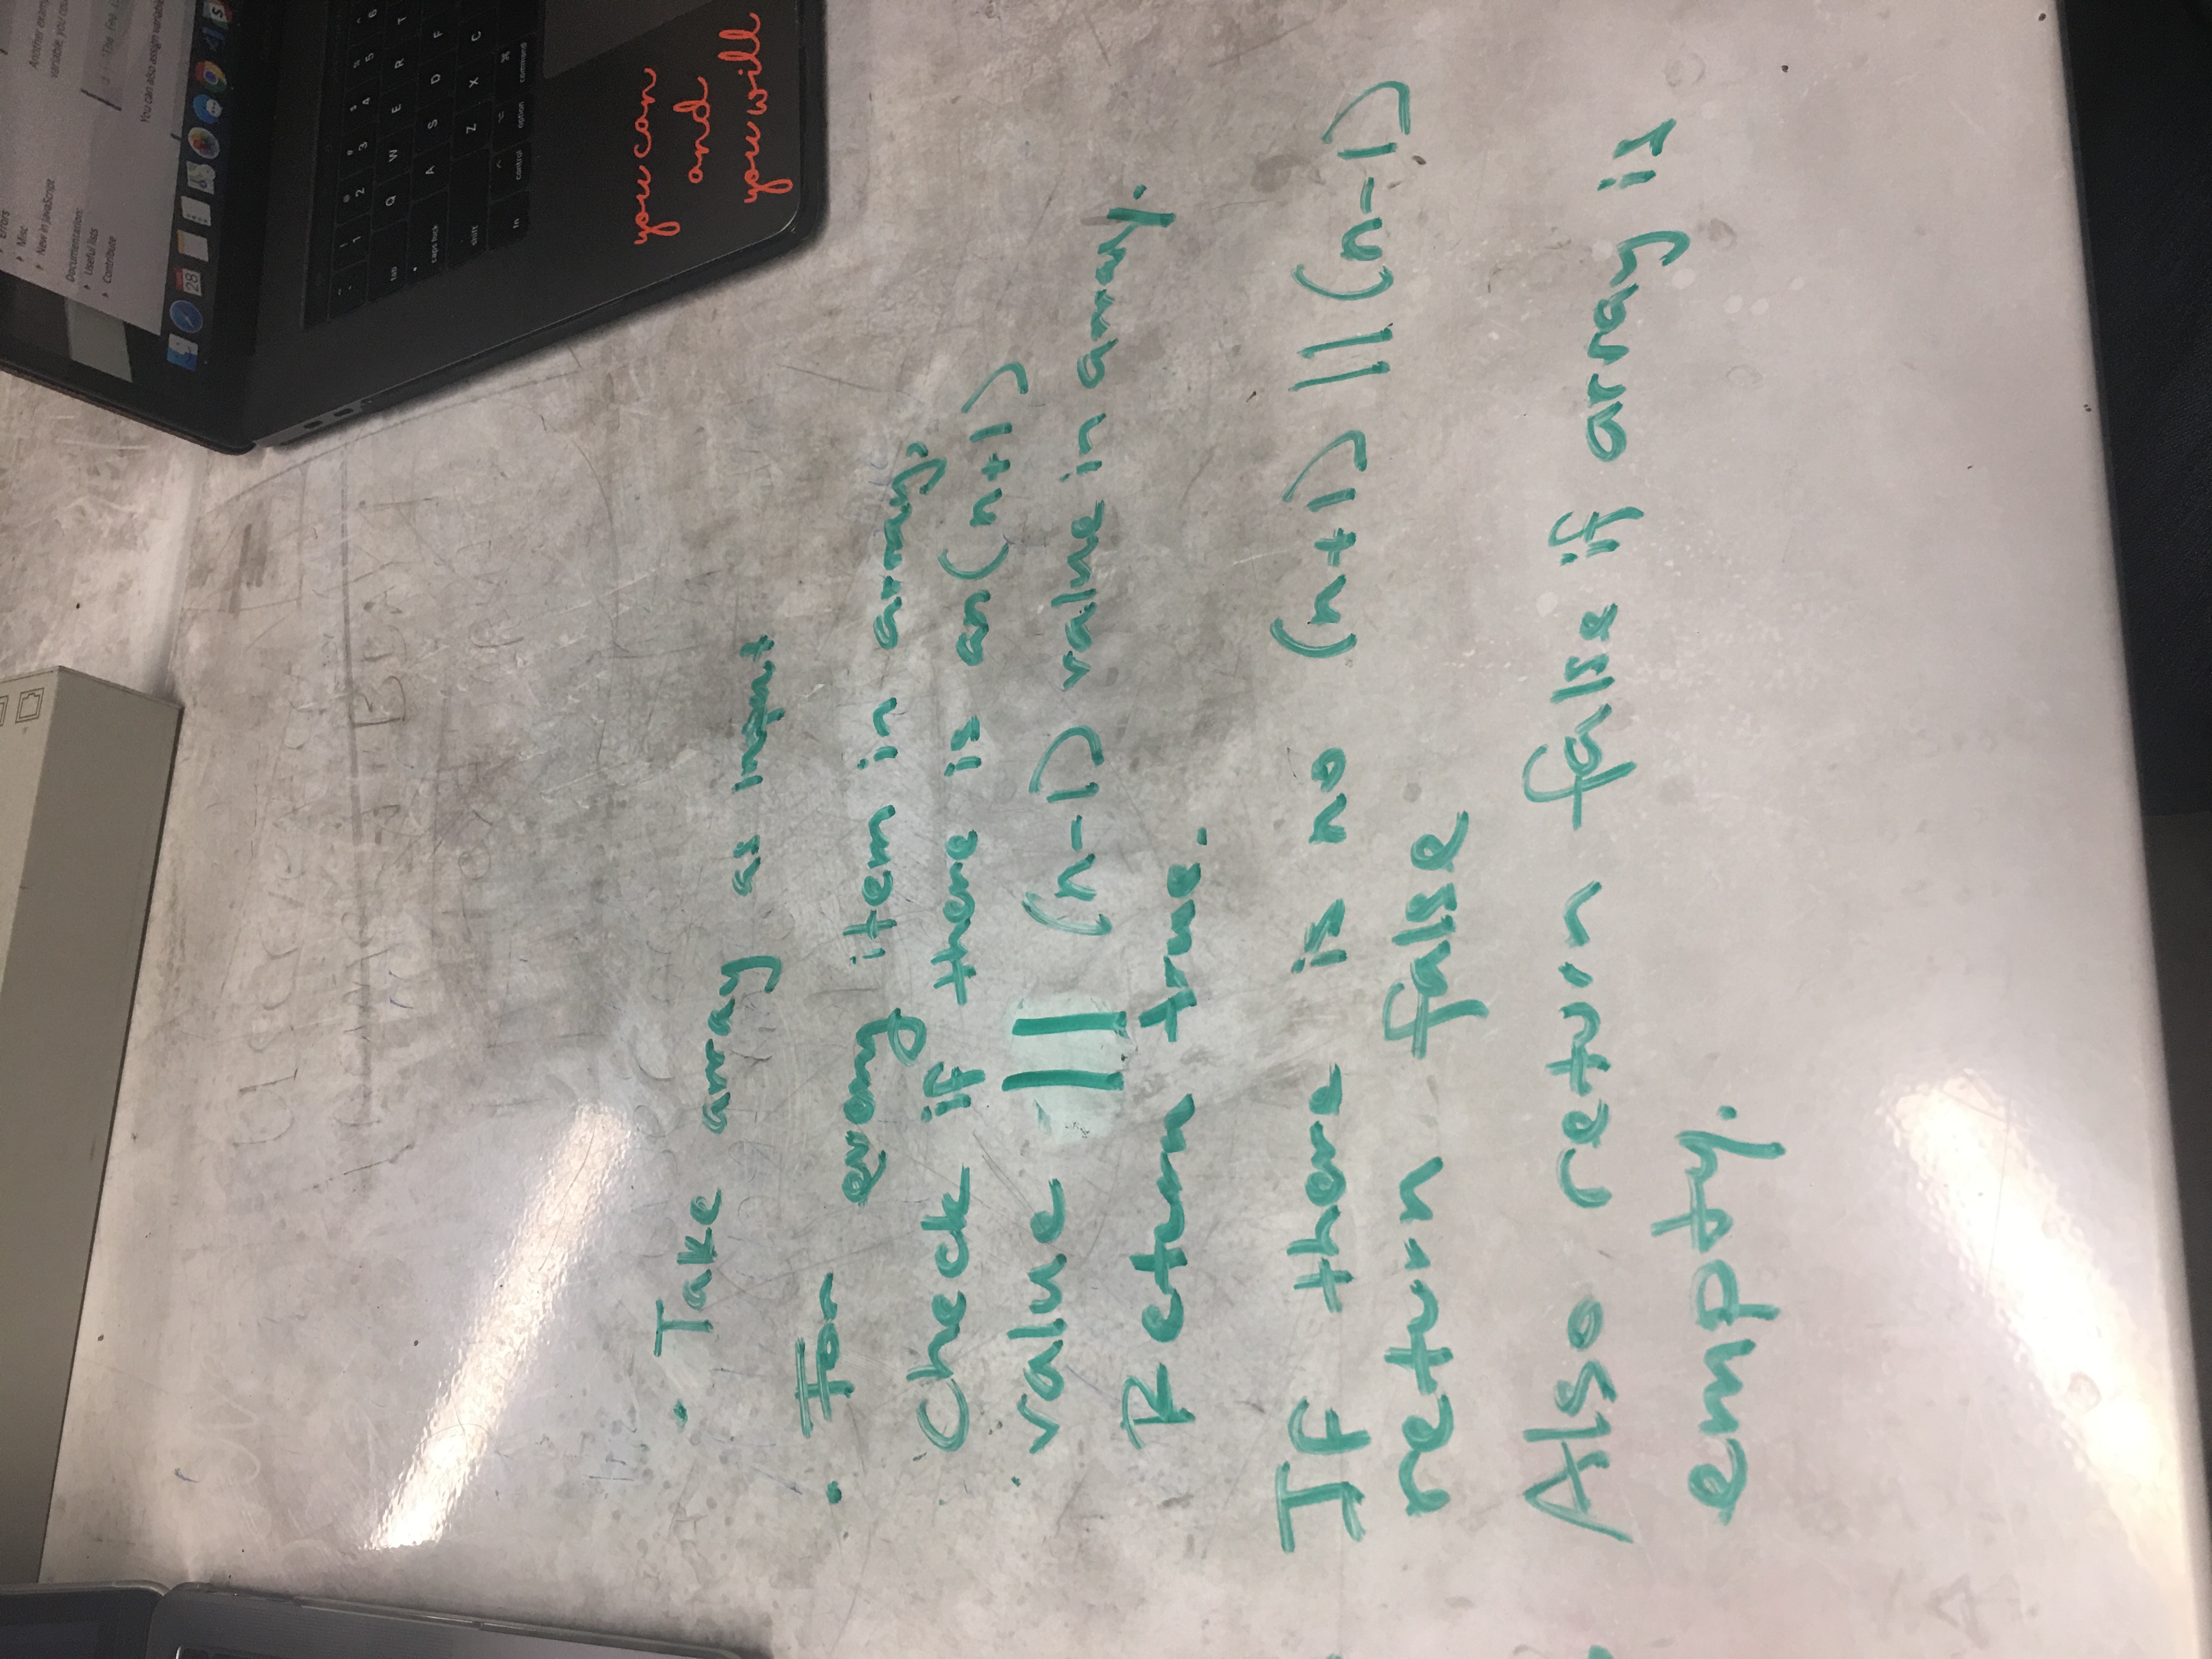 Errors
Misc
New in JavaScript
Documentation:
Useful lists
Contribute
Another
variable, you
You can also assign
28
1 2 3 4 5 6
tab Q W E R T
caps lock A S D F
shift Z X C
fn control option command
you can
and
you will
• Take array as input
• For every item in array,
Check if there is an (n+1)
value || (n-1) value in array.
Return true.
If there is no (n+1) || (n-1)
return false
• Also return false if array is
empty.